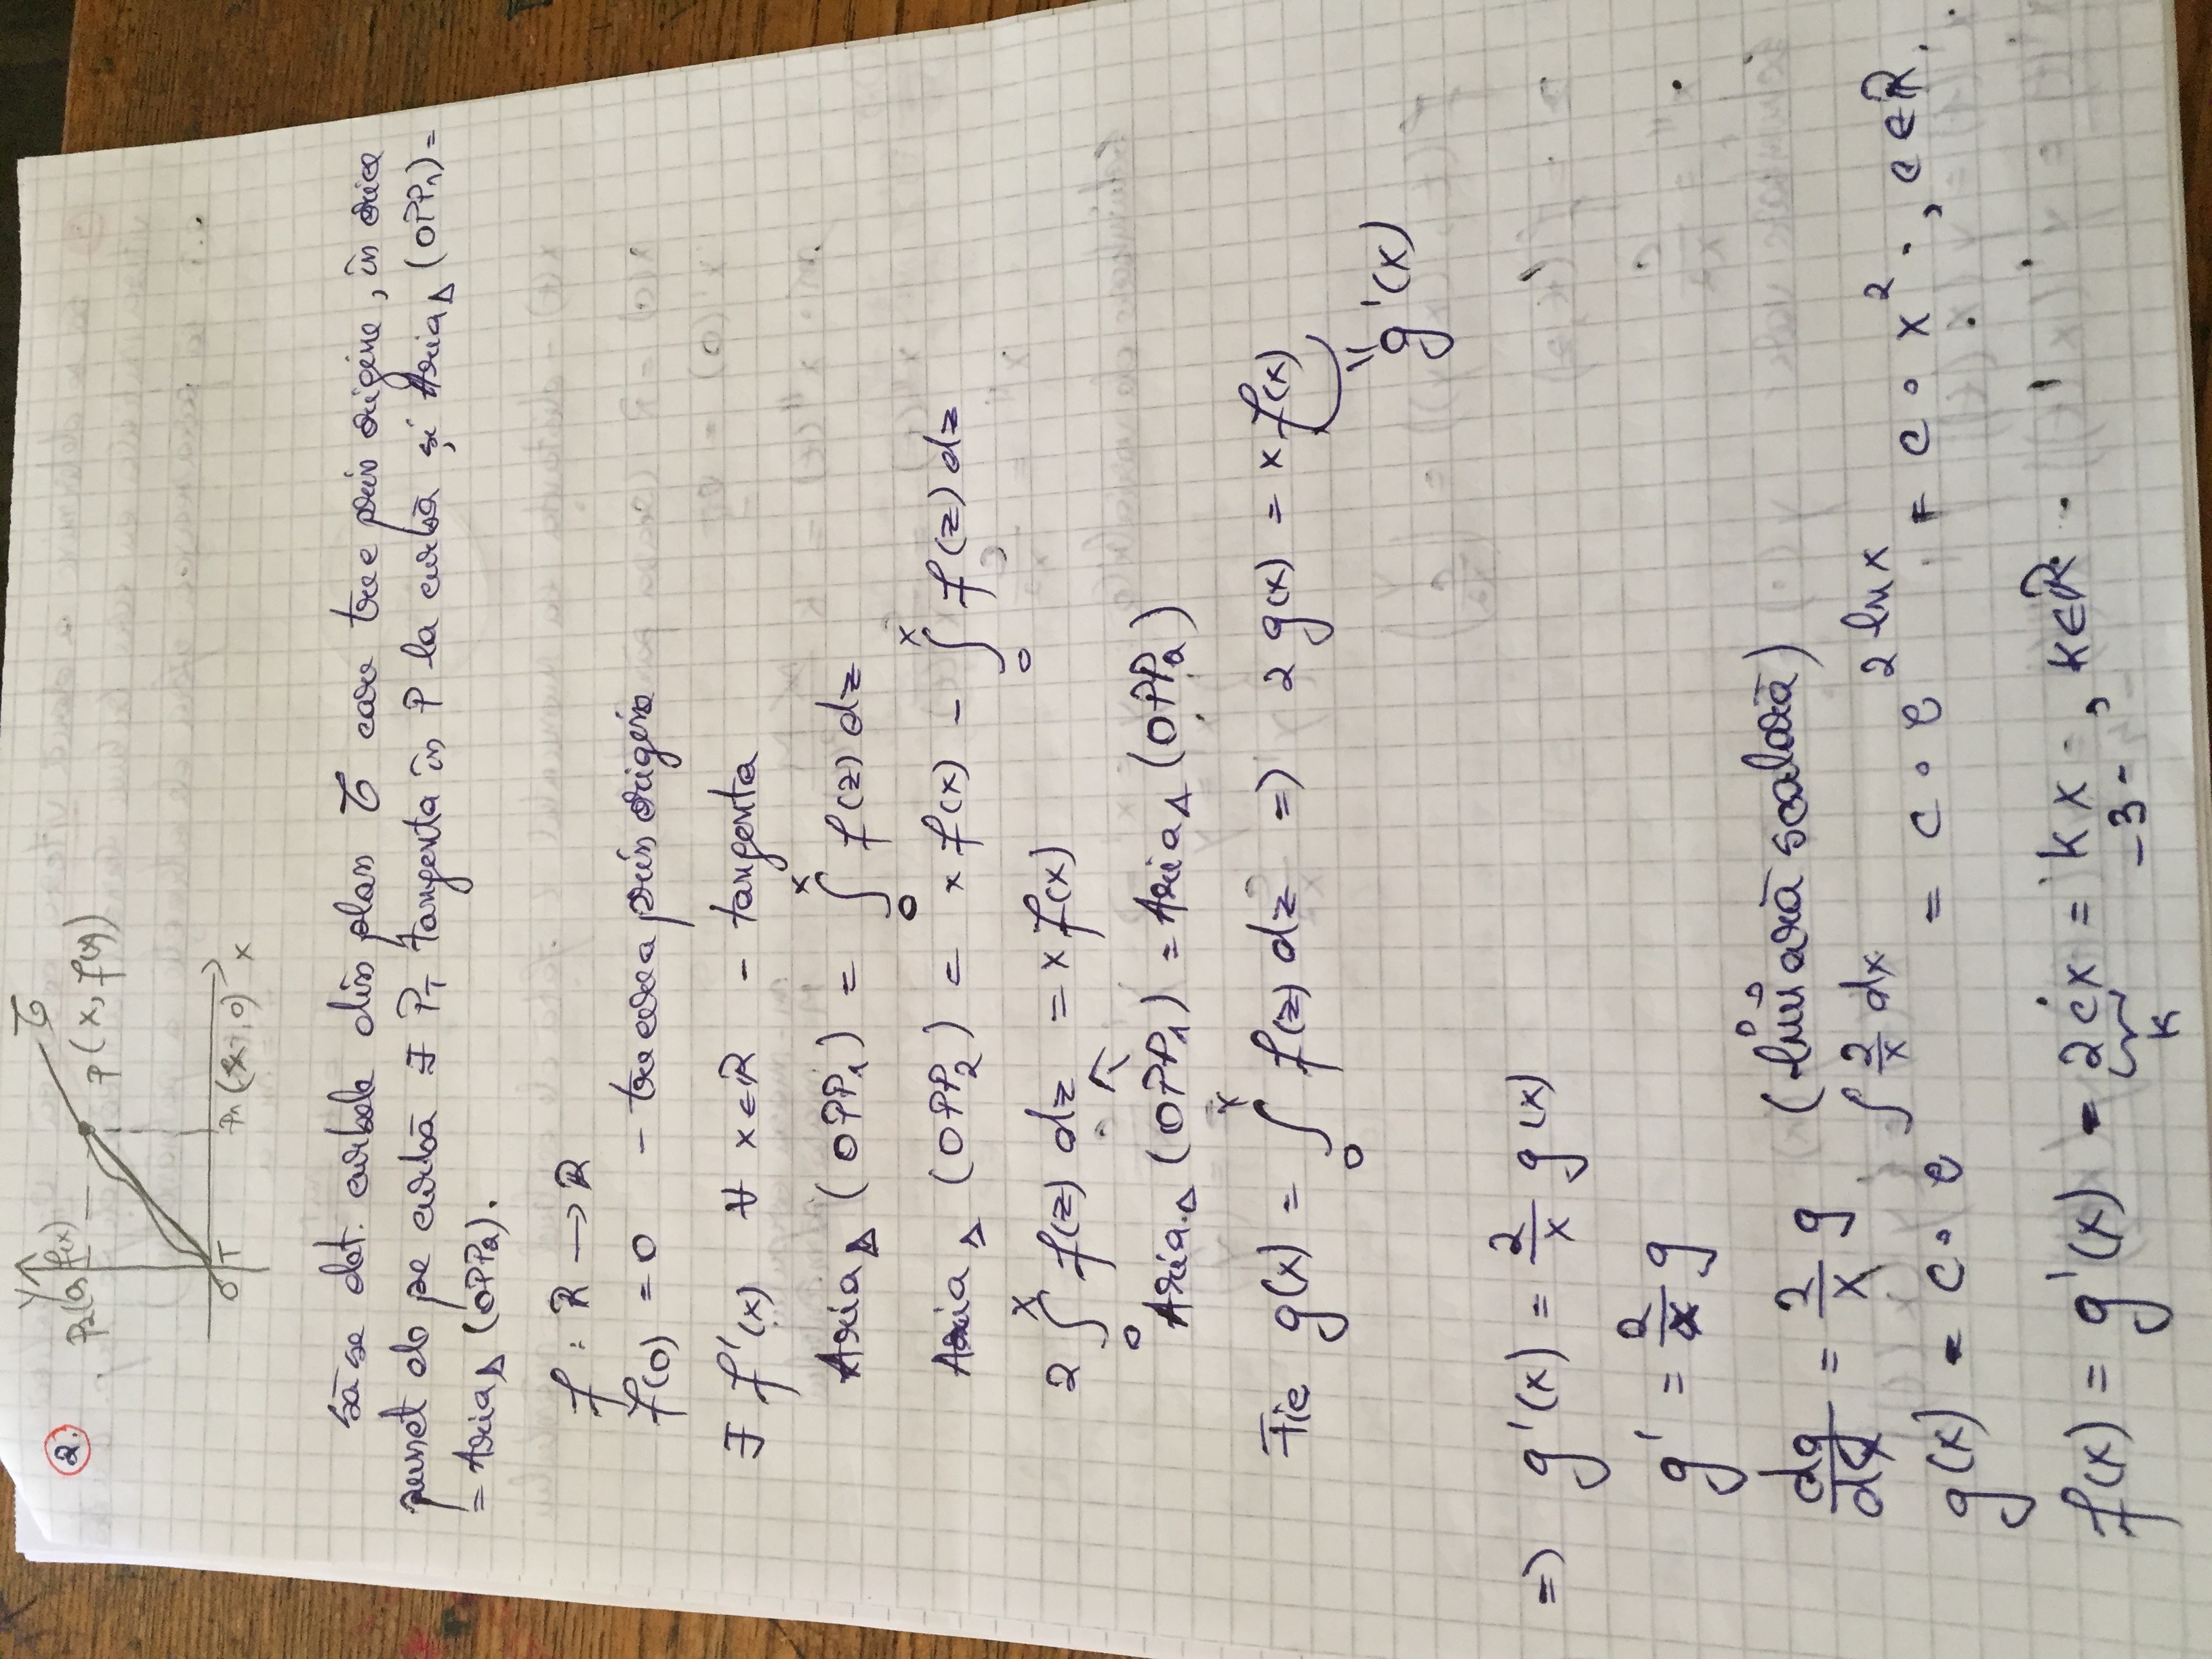 2.
y
P2(0, f(x)
𝒞
P(x, f(x))
O T
P1(x, 0)
x
să se det. curbele din plan 𝒞 care trec prin origine, în orice
punct de pe curbă ∃ PT tangenta în P la curbă și Aria△ (OPP1) =
= Aria△ (OPP2).
f : R → R
f(0) = 0 - trecerea prin origine
∃ f'(x) ∀ x∈R - tangenta
Aria△ (OPP1) = ∫₀ˣ f(z) dz
Aria△ (OPP2) = x f(x) - ∫₀ˣ f(z) dz
2 ∫₀ˣ f(z) dz = x f(x)
↑
Aria△ (OPP1) = Aria△ (OPP2)
Fie g(x) = ∫₀ˣ f(z) dz => 2 g(x) = x f(x)
"
g'(x)
=> g'(x) = 2/x g(x)
g' = 2/x g
dg/dx = 2/x g (liniară scalară)
g(x) = c · e^(∫ 2/x dx) = c · e^(2 ln x) = c · x², c∈R.
f(x) = g'(x) = 2cx = kx, k∈R
k
-3-